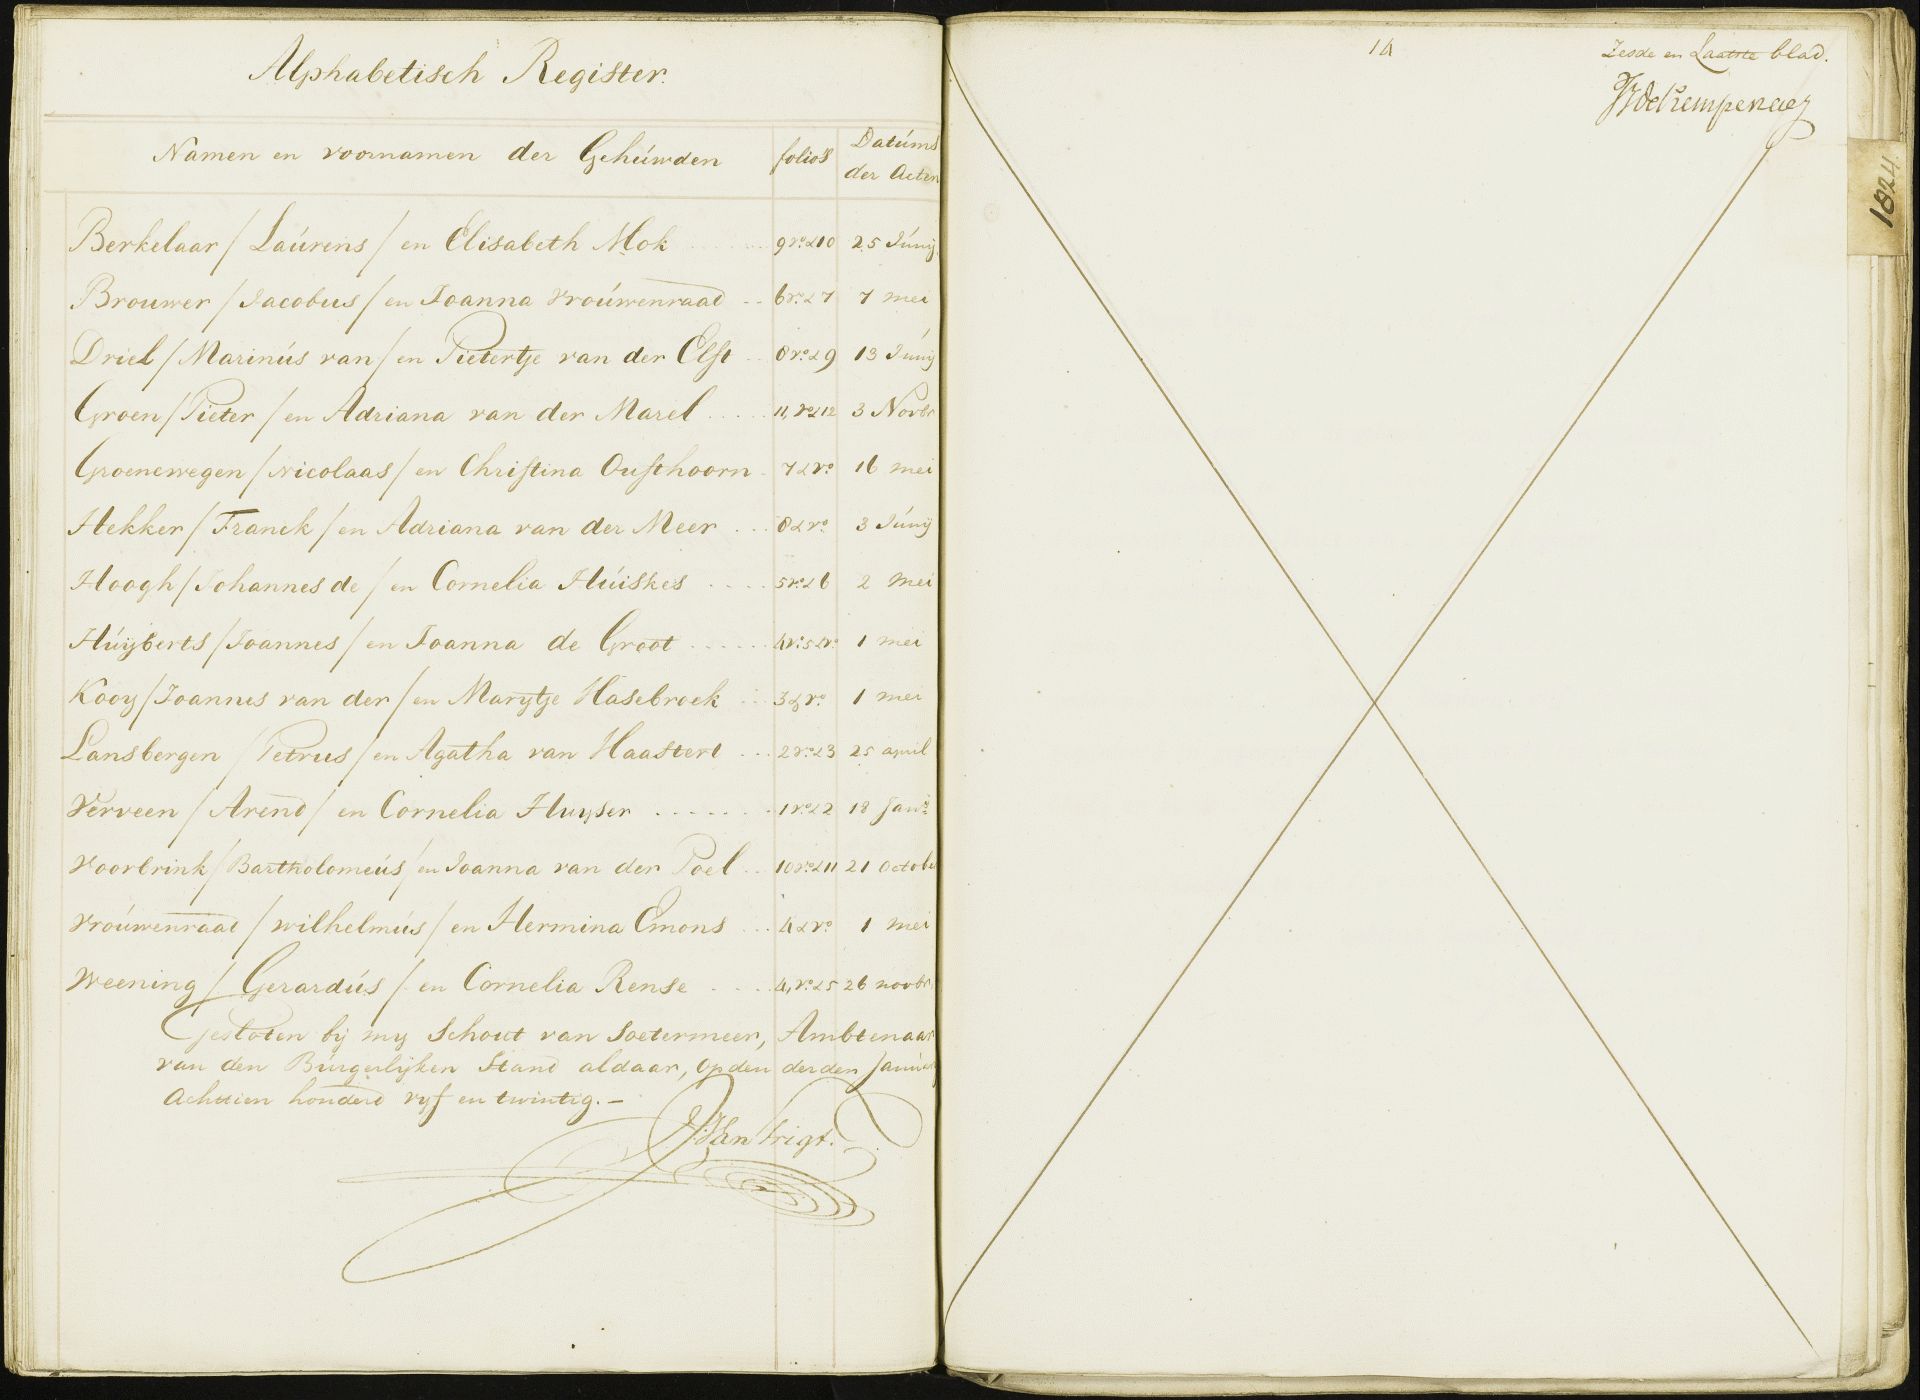 Alphabetisch Register.
Namen en voornamen der Gehúwden folio's Datúms der Acten
Berkelaar / Laúrens / en Elisabeth Mok 9 vo. & 10 25 Júnij
Brouwer / Jacobus / en Joanna Vroúwenraad 6 vo. & 7 7 mei
Driel / Marinús van / en Pietertje van der Elst 8 vo. & 9 13 Júnij
Groen / Pieter / en Adriana van der Marel 11, vo. & 12 3 Novbr
Groenewegen / Nicolaas / en Christina Ousthoorn 7 & vo. 16 mei
Hekker / Franck / en Adriana van der Meer 8 & vo. 3 Júnij
Hoogh / Johannes de / en Cornelia Húiskes 5 vo. & 6 2 mei
Húijberts / Joannes / en Joanna de Groot 4 vo. 5 & vo. 1 mei
Kooy / Joannes van der / en Marijtje Hasebroek 3 & vo. 1 mei
Lansbergen / Petrus / en Agatha van Haastert 2 vo. & 3 25 april
Verveen / Arend / en Cornelia Huyser 1 vo. & 2 18 Jan.
Voorbrink / Bartholomeús / en Joanna van der Poel 10 vo. & 11 21 Octobe
Vroúwenraad / Wilhelmús / en Hermina Emons 4 & vo. 1 mei
Weening / Gerardús / en Cornelia Rense 4, vo. & 5 26 novbr
Gesloten bij my Schout van Soetermeer, Ambtenaar
van den Búrgerlijken Stand aldaar, op den derden Januarij
Achttien honderd vyf en twintig. —
van Trigt.
14
Zesde en Laatste blad.
1824